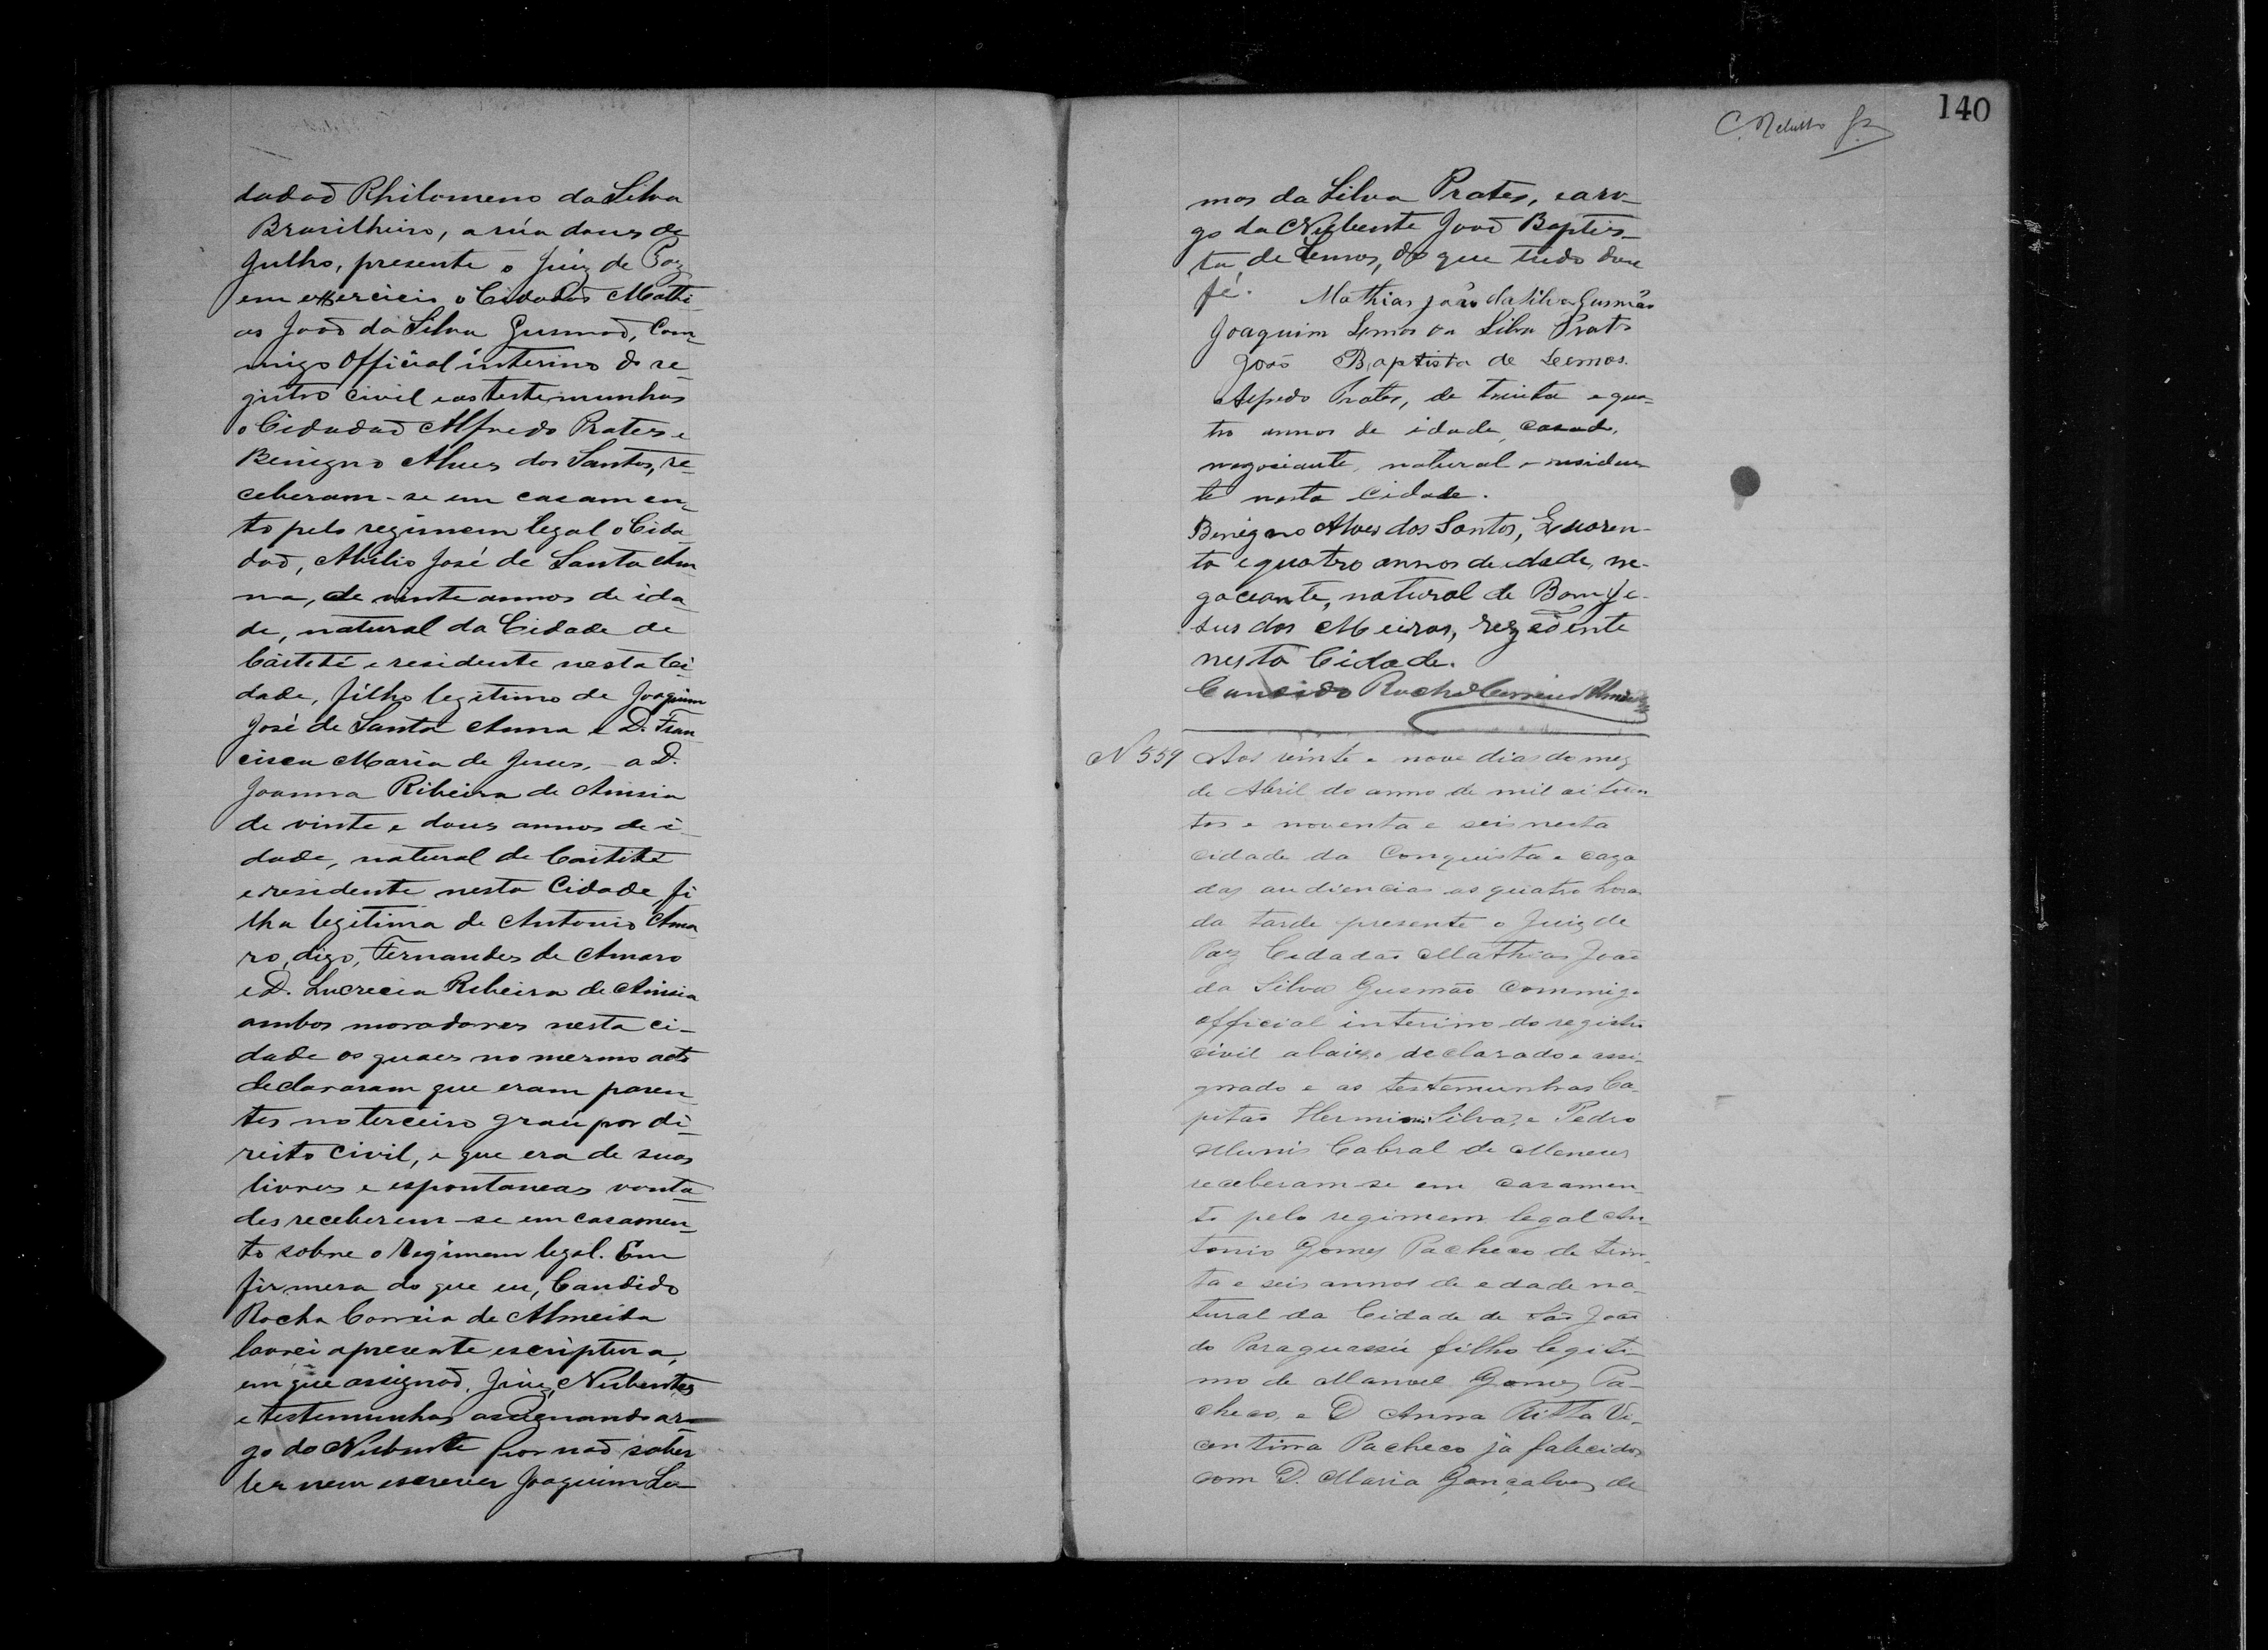 dadaõ Philomeno da Silva
Brasilheiro, a rúa dous de
Julho, presente o Juiz de Paz
em exercicio o Cidadaõ Mathi-
as Joaõ da Silva Gusmaõ, Com-
migo Official interino do re-
gistro civil e as testemunhas
o Cidadaõ Alfredo Prates e
Benigno Alves dos Santos, re-
ceberam-se em casamen-
to pelo regimem legal o Cida-
daõ, Abilio José de Santa An-
na, de vinte annos de ida
de, natural da Cidade de
Caiteté e residente nesta Ci-
dade, filho legitimo de Joaquim
José de Santa Anna e D. Fran-
cisca Maria de Jesus, a D.
Joanna Ribeira de
de vinte e dous annos de i-
dade, natural de Caitité
e residente nesta Cidade, fi
lha legitima de Antonio Ama-
ro, digo, Fernandes de Amaro
e D. Lucrecia Ribeira de
ambos moradores nesta ci-
dade os quaes no mesmo acto
declararam que eram paren-
tes no terceiro graú por di-
reito civil, e que era de suas
livres e espontaneas vonta-
des receberem-se em casamen-
to sobre o regimem legal. Em
firmesa do que eu, Candido
Rocha Correia de Almeida
lavrei apresente escriptura,
em que assignaõ, Juiz, Nubentes
e testemunhas assignando aro-
go do Nubente por naõ saber
ler nem escrever Joaquim Le-
140
mos da Silva Prates, e aro-
go da Nubente Joaõ Baptis-
ta de Lemos, do que tudo dou
fé. Mathias João da Silva Gusmão
Joaquim Lemos da Silva Prates
João Baptista de Lemos.
Alfredo Prates, de trinta e qua-
tro annos de idade, casado,
negociante, natural e residen-
te nesta Cidade.
Benigno Alves dos Santos, Quaren-
ta e quatro annos de edade, ne-
gaceante, natural de Bom Je-
sus dos Meiras, rezedente
nesta Cidade.
Candido Rocha Correia Almeida
N 559 Aos vinte e nove dias do mez
de Abril do anno de mil oitocen
tos e noventa e seis nesta
cidade da Conquista e caza
das audiencias as quatro horas
da tarde presente o Juiz de
Paz Cidadão Mathias João
da Silva Gusmão commigo
official interino do registro
civil abaixo declarado e assi-
gnado e as testemunhas Ca-
pitão Silva, e Pedro
Munis Cabral de Meneses
receberam-se em casamen-
to pelo regimem legal An-
tonio Gomes Pacheco de trin-
ta e seis annos de edade na-
tural da Cidade de São João
do Paraguassú filho legiti-
mo de Manoel Gomes Pa-
checo, e D Anna Ritta Vi-
centina Pacheco ja falecidos
com D. Maria Gonçalves de